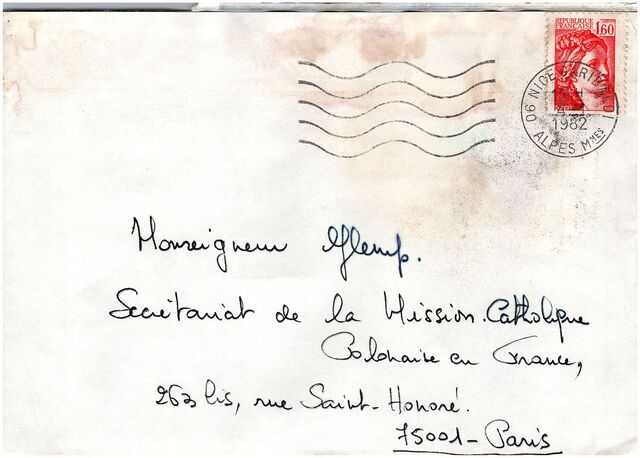 REPUBLIQUE
FRANÇAISE
1,60
06 NICE
1982
ALPES Mmes
Monseigneur Glemp.
Secrétariat de la Mission Catholique
Polonaise en France,
263 bis, rue Saint-Honoré.
75001-Paris